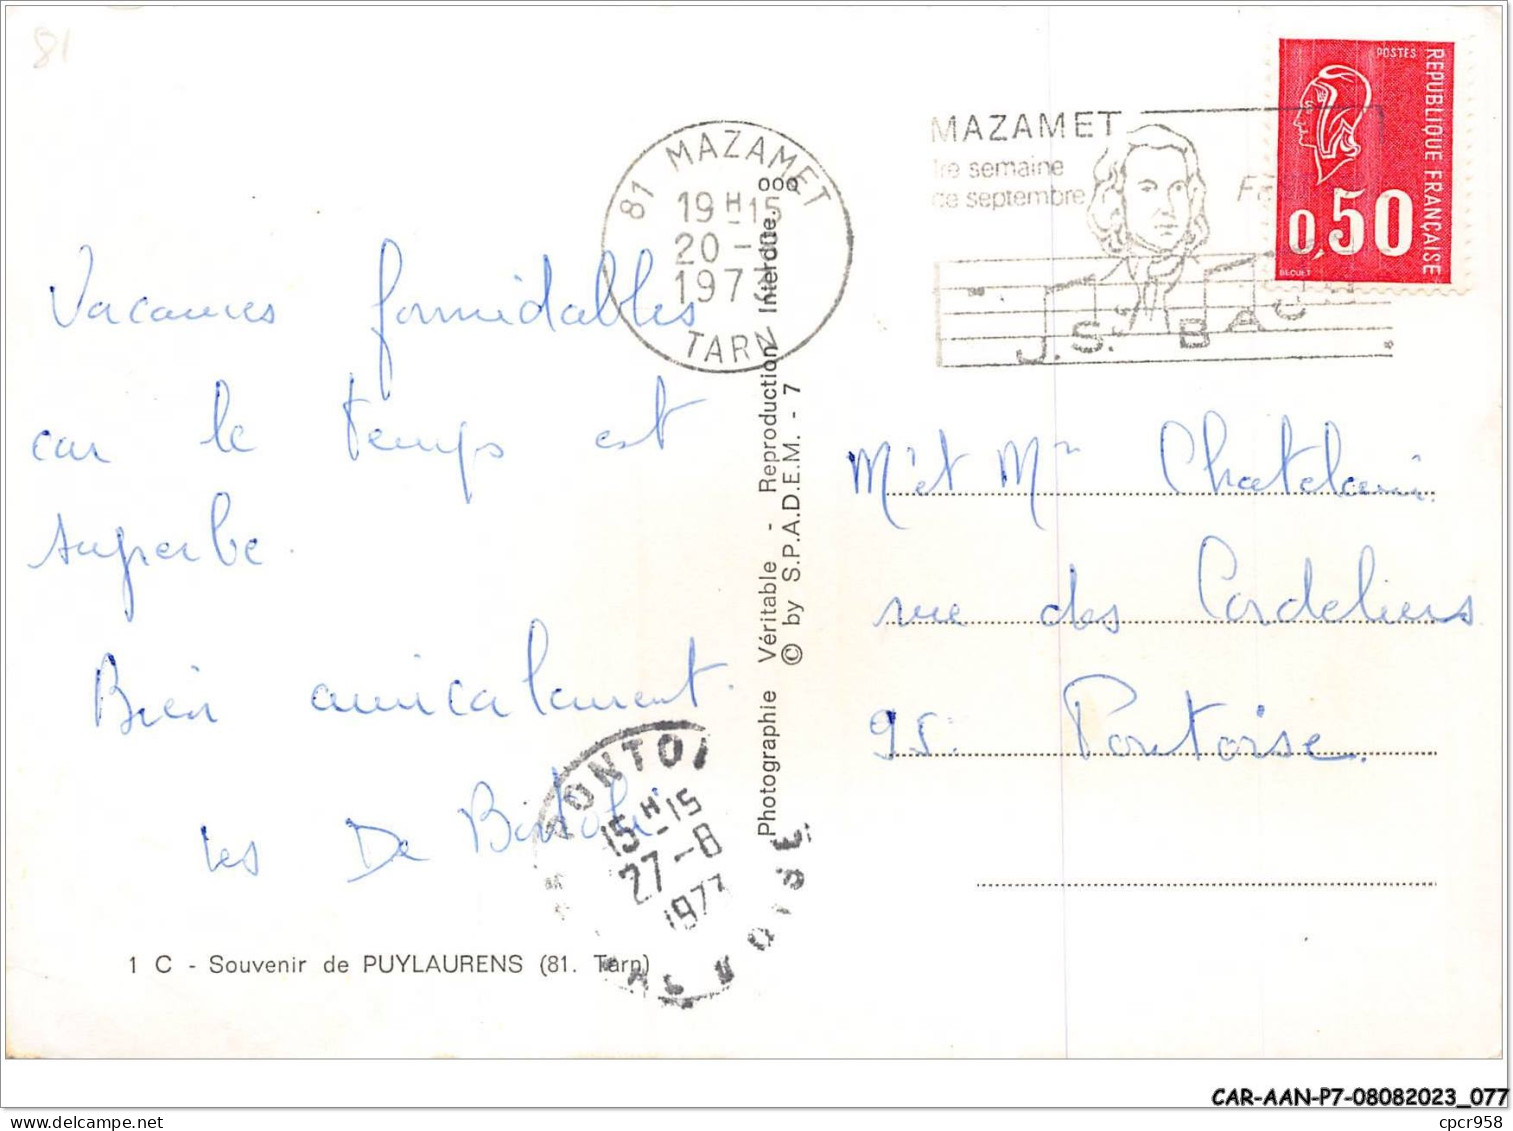 81
MAZAMET
1re semaine
de septembre
J.S. BAC
POSTES
REPUBLIQUE FRANÇAISE
0,50
BECUET
81 MAZAMET
19H15
20 -
1977
TARN
Vacances formidables
car le temps est
superbe.
Bien amicalement.
les De
1 C - Souvenir de PUYLAURENS (81. Tarn)
PONTOI
15H-15
27-8
1977
OISE
Photographie Véritable - Reproduction Interdite. 000
© by S.P.A.D.E.M. - 7
Mr et Mme Chatelain.
rue des Cordeliers
95. Pontoise.
CAR-AAN-P7-08082023_077
www.delcampe.net
cpcr958